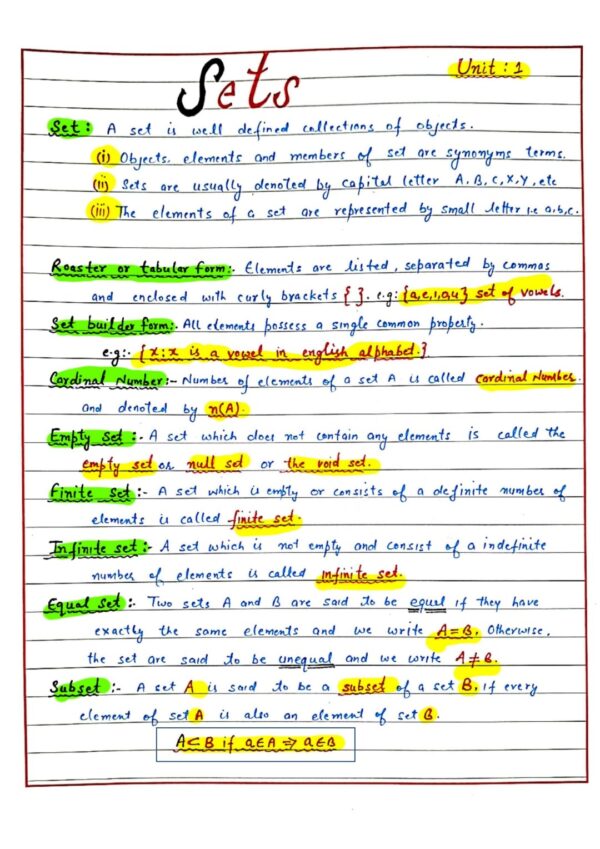 Sets
Unit : 1
Set : A set is well defined collections of objects.
(i) Objects, elements and members of set are synonyms terms.
(ii) Sets are usually denoted by capital letter A, B, C, X, Y, etc
(iii) The elements of a set are represented by small letter i.e a, b, c.
Roaster or tabular form:- Elements are listed, separated by commas
and enclosed with curly brackets { }. e.g: {a, e, i, o, u} set of vowels.
Set builder form:- All elements possess a single common property.
e.g:- { x : x is a vowel in english alphabet. }
Cardinal Number:- Number of elements of a set A is called Cardinal Number.
and denoted by n(A).
Empty set :- A set which does not contain any elements is called the
empty set or null set or the void set.
Finite set :- A set which is empty or consists of a definite number of
elements is called finite set.
Infinite set:- A set which is not empty and consist of a indefinite
number of elements is called infinite set.
Equal Set :- Two sets A and B are said to be equal if they have
exactly the same elements and we write A = B. Otherwise,
the set are said to be unequal and we write A ≠ B.
Subset :- A set A is said to be a subset of a set B, if every
element of set A is also an element of set B.
A⊂B if a∈A ⇒ a∈B